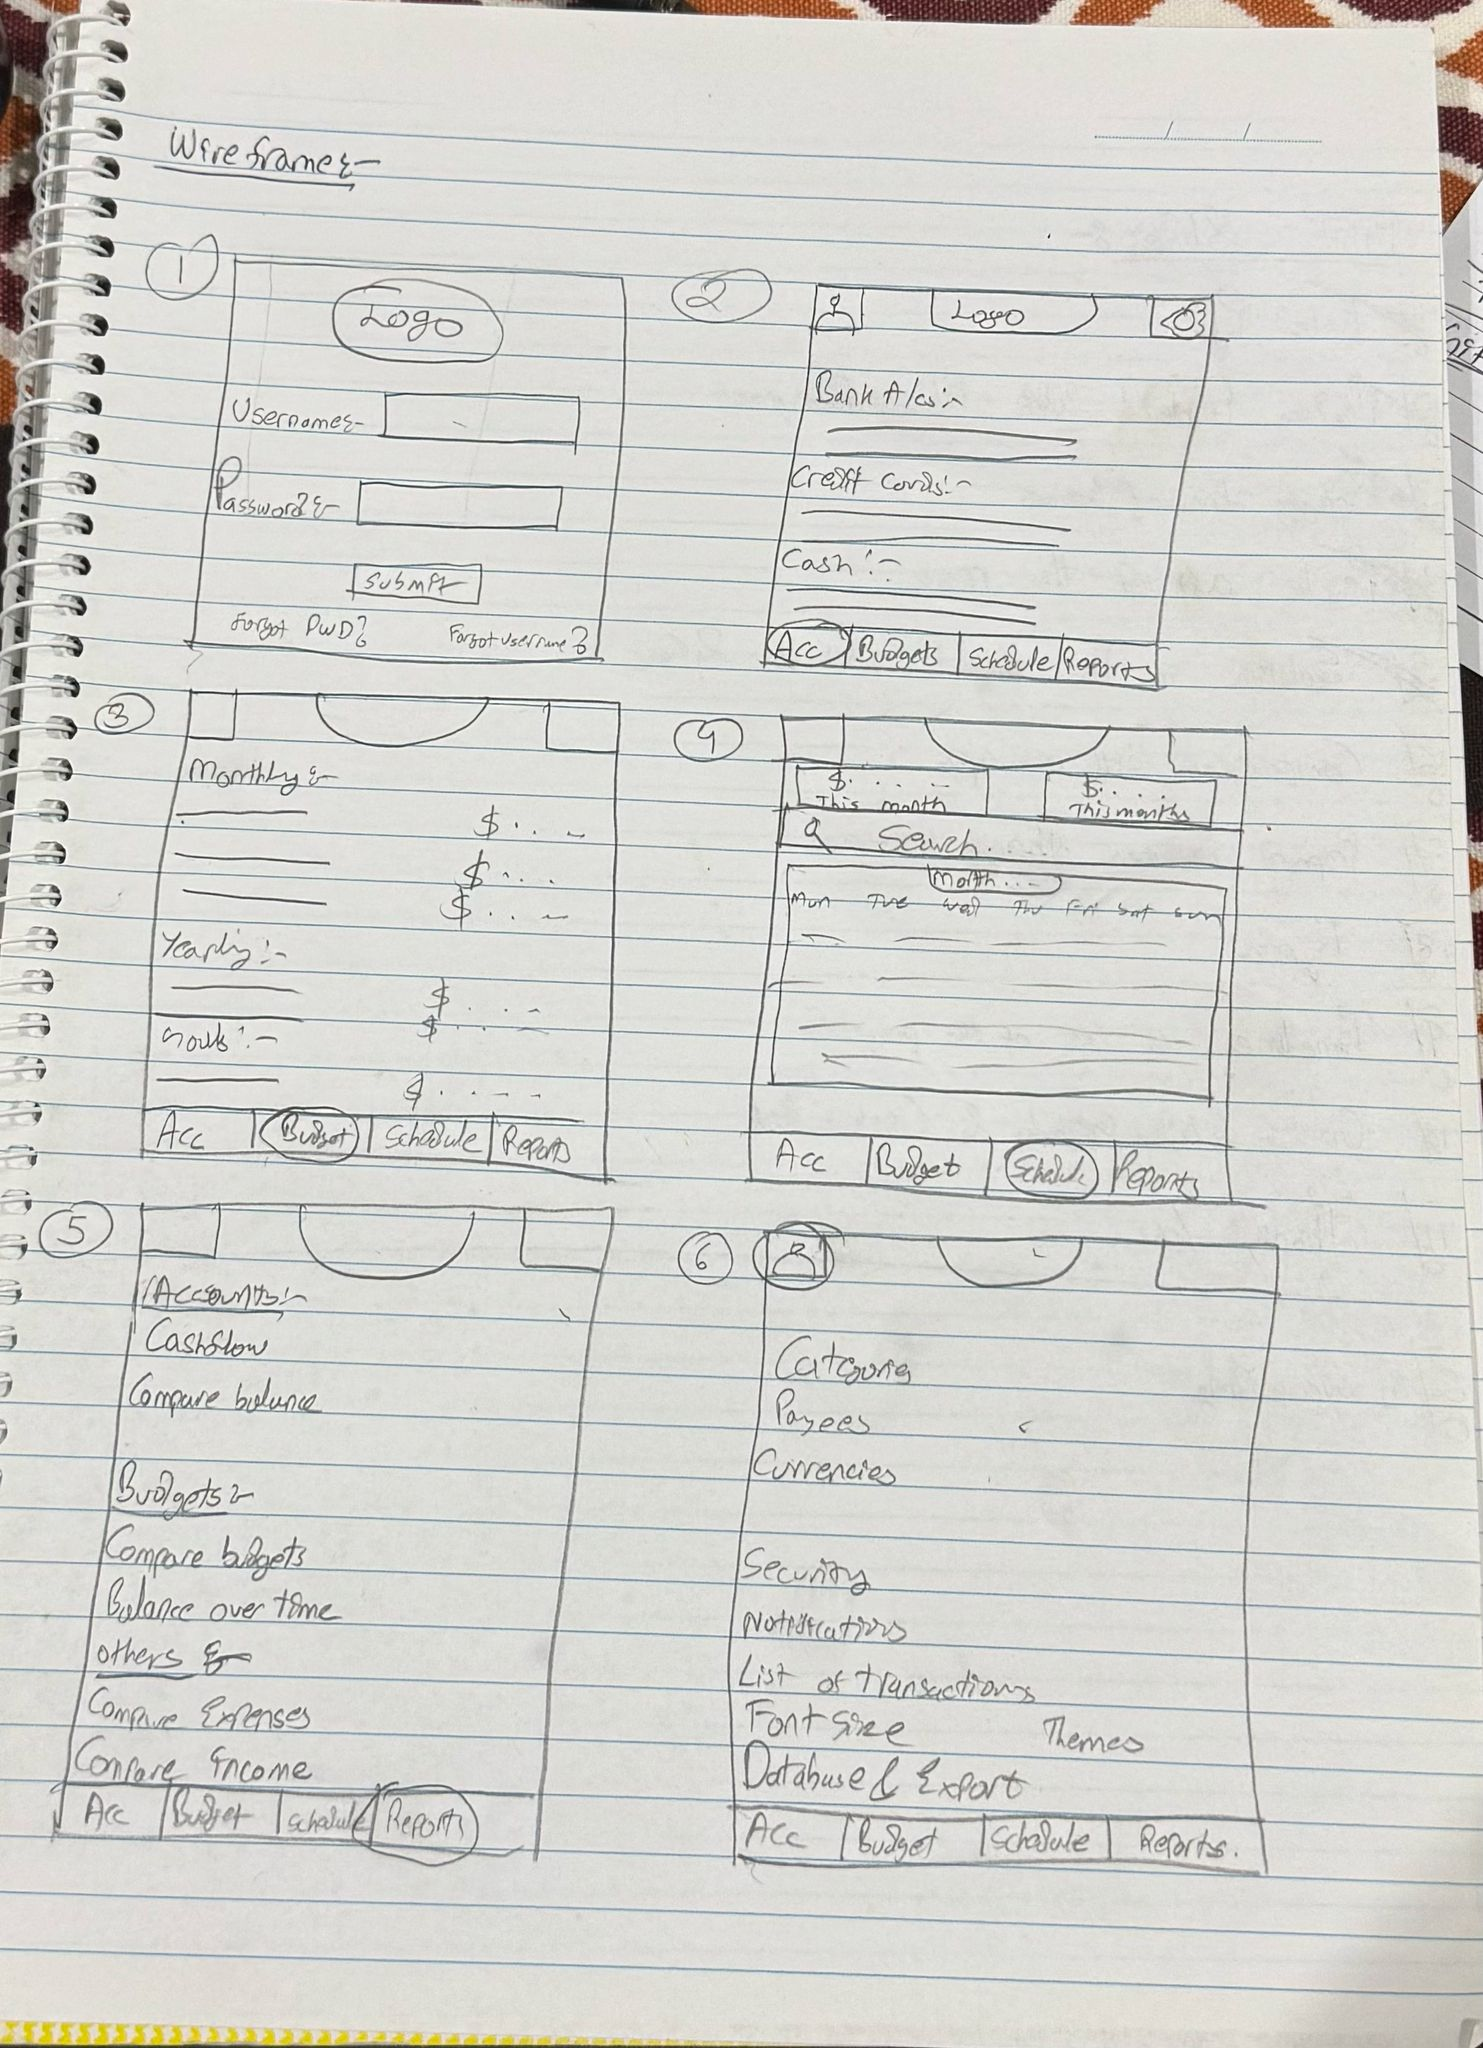 Wireframe:-
1
Logo
Username:-
Password:-
Submit
Forgot PWD?
Forgot username?
2
Logo
Bank A/cs:-
Credit Cards:-
Cash:-
Acc Budgets Schedule Reports
3
Monthly:-
$....
$...
$...
Yearly:-
$....
$....
Goals:-
$.....
Acc Budget Schedule Reports
4
$.....
This month
$.....
This months
Search....
Month...
Mon Tue Wed Thu Fri Sat Sun
Acc Budget Schedule Reports
5
Accounts:-
Cashflow
Compare balance
Budgets:-
Compare budgets
Balance over time
others:-
Compare Expenses
Compare Income
Acc Budget Schedule Reports
6
Categories
Payees
Currencies
Security
Notifications
List of transactions
Font size Themes
Database & Export
Acc Budget Schedule Reports.